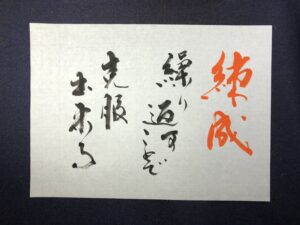 練成
繰り返すことで
克服
出来る